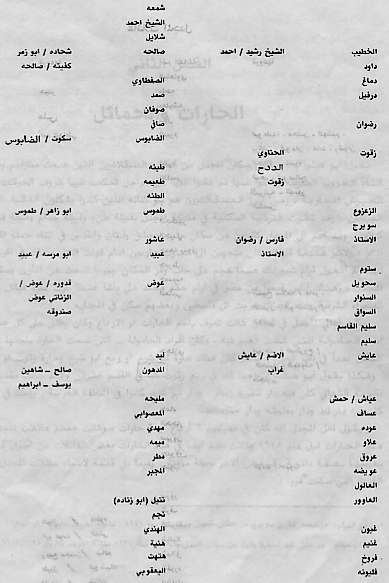 شمعه
الشيخ احمد
شلايل
الخطيب الشيخ رشيد / احمد صالحه شحاده / ابو زمر
داود كفينه / صالحه
دماغ الصفطاوي
درفيل صمد
صوفان
رضوان صافي
الضابوس سكوت / الضابوس
زقوت الحناوي
الددح طبنه
زقوت طعيمه
الطنه
الزعزوع طموس ابو زاهر / طموس
سويرح
الاستاذ فارس / رضوان عاشور
الاستاذ عبيد ابو مرسه / عبيد
ستوم
سحويل عوض قدوره / عوض /
السنوار الزناتي عوض
السواق صندوقه
سليم القاسم
سليم
عايش الاضم / عايش لبد
غراب المدهون صالح ــ شاهين
يوسف ــ ابراهيم
عياش / حمش مليحه
عساف المعصوابي
عوده مهدي
علاو ميمه
عروق مطر
عويضه المجبر
العالول
العاوور ننبل (ابو زناده)
نجم
غبون الهندي
غنيم هنية
فروخ هتهت
قلبونه اليعقوبي